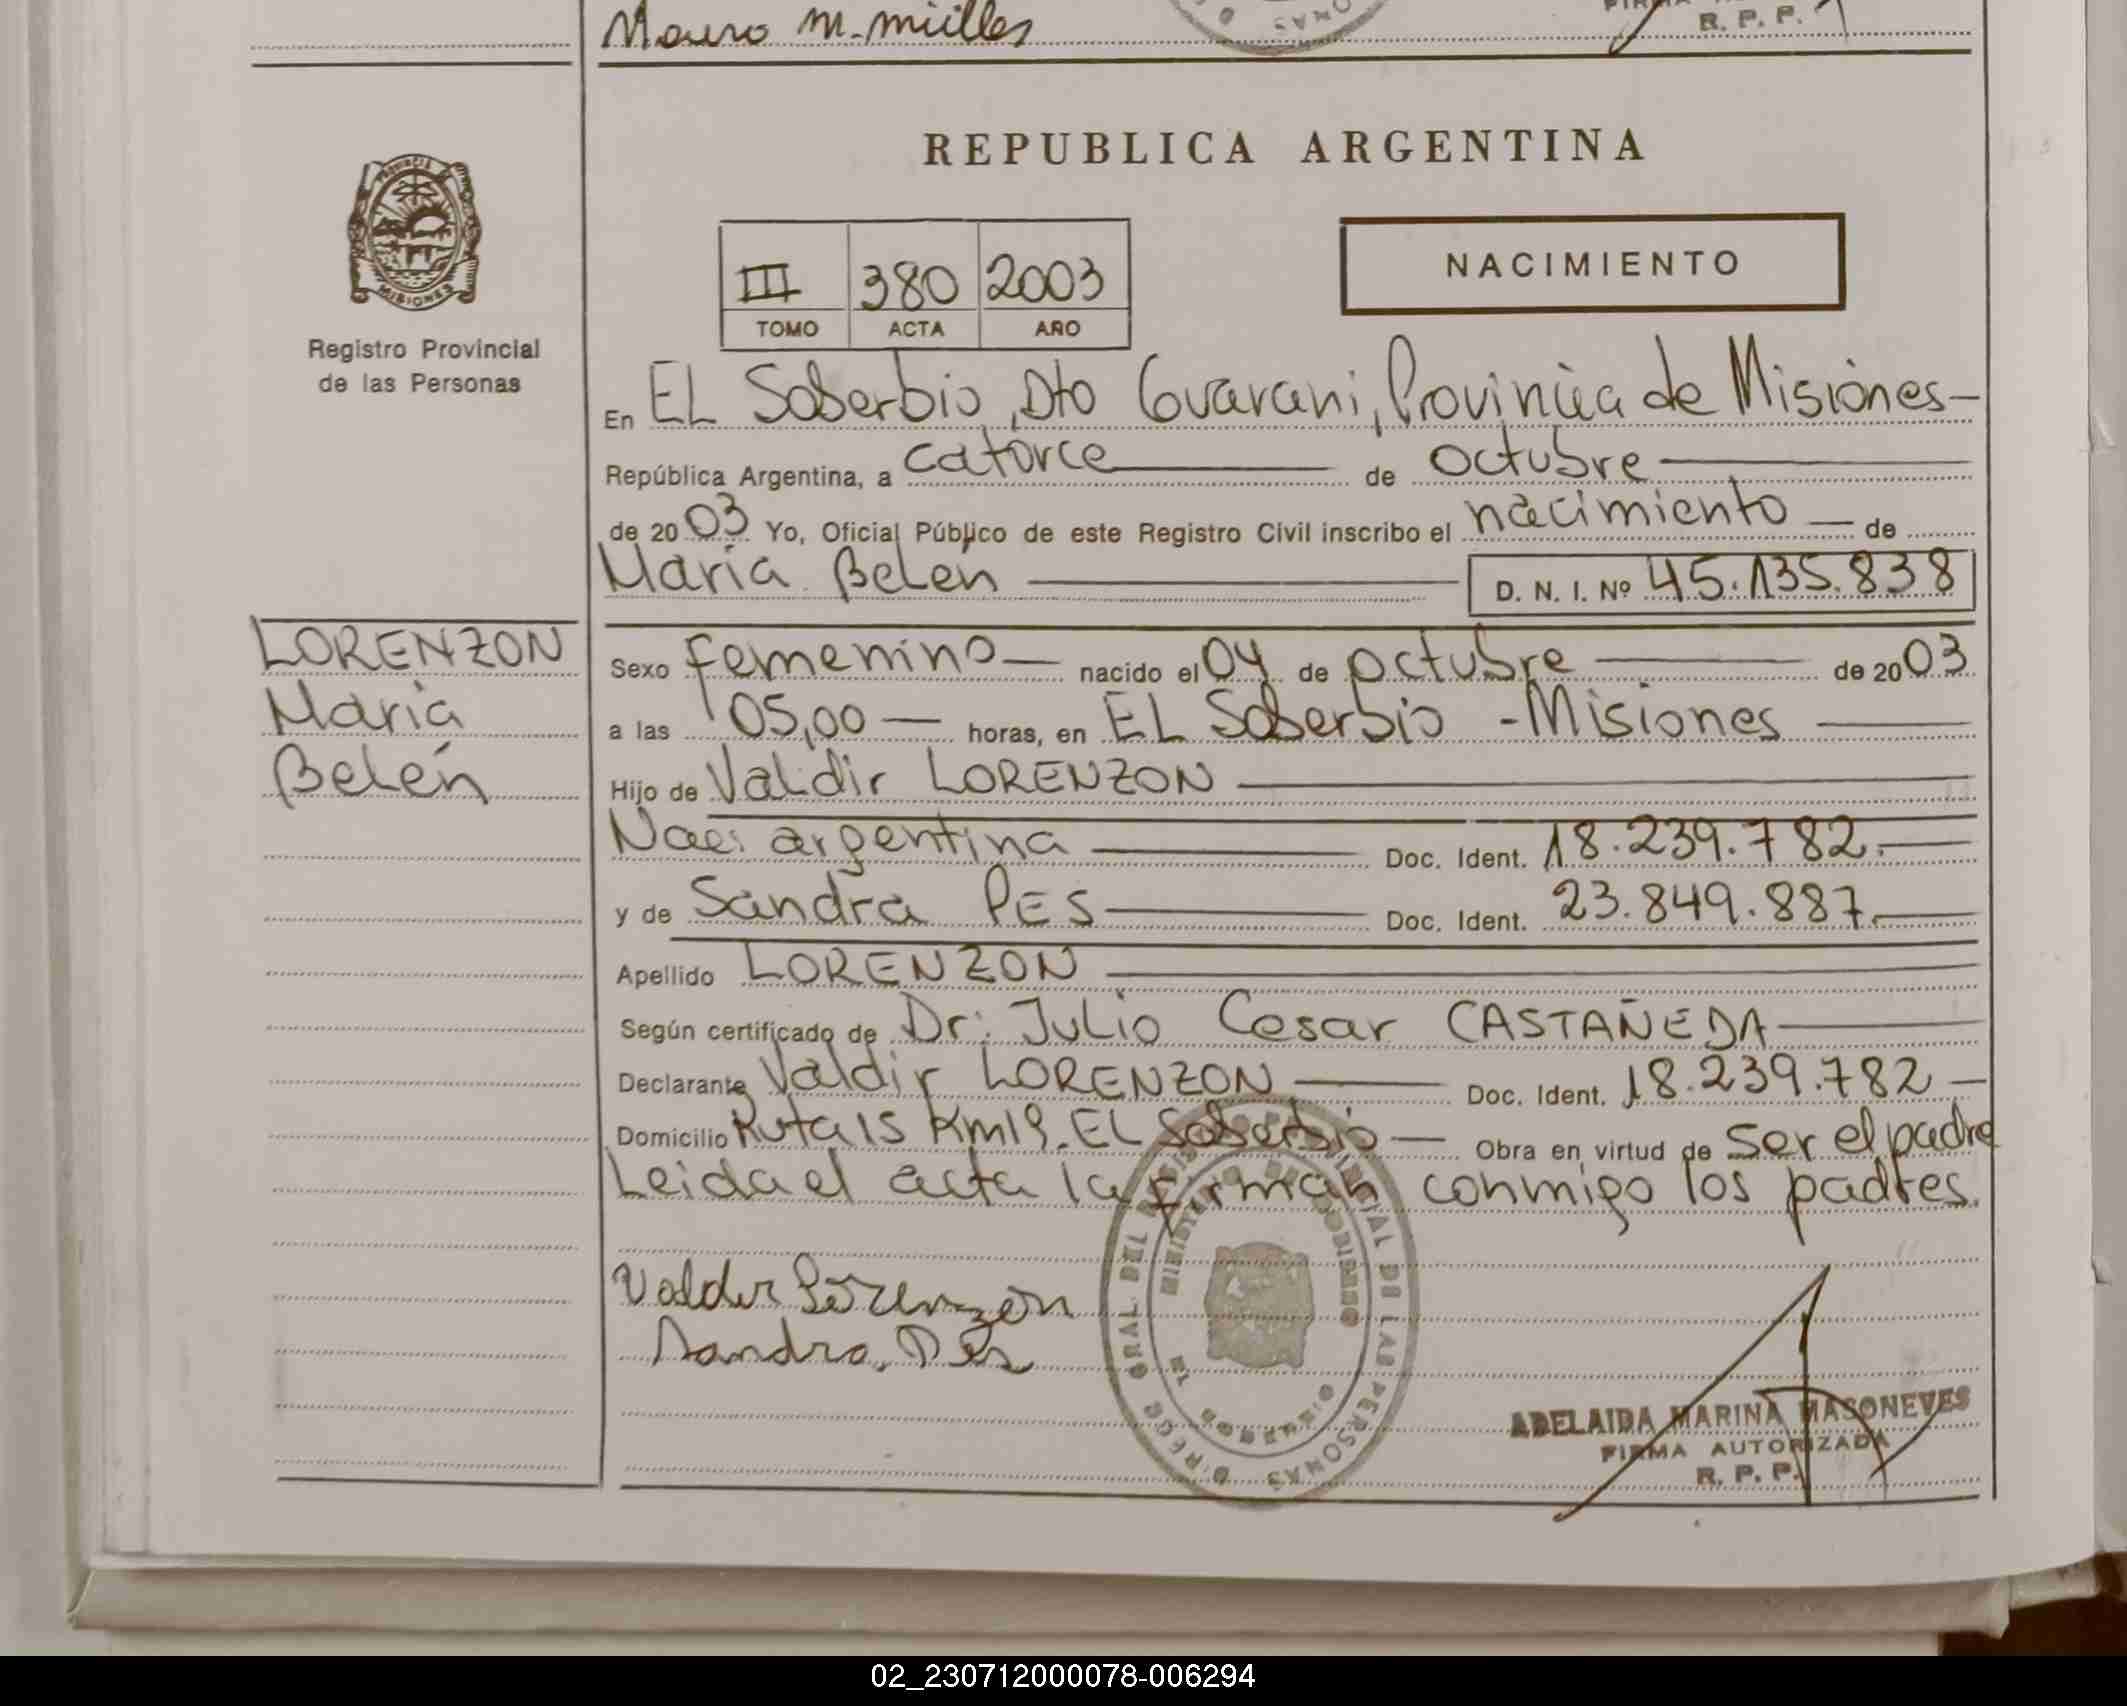 Mauro M. Müller
R. P. P.
PROVINCIA
MISIONES
Registro Provincial
de las Personas
REPUBLICA ARGENTINA
III 380 2003
TOMO ACTA AÑO
NACIMIENTO
En EL Soberbio, Dto Guarani, Provincia de Misiones
República Argentina, a catorce de octubre
de 2003 Yo, Oficial Público de este Registro Civil inscribo el nacimiento de
Maria Belen D. N. I. Nº 45.135.838
LORENZON
Maria
Belén
Sexo femenino nacido el 04 de octubre de 2003
a las 05,00 horas, en EL Soberbio - Misiones
Hijo de Valdir LORENZON
Nac: argentina Doc. Ident. 18.239.782.
y de Sandra PES Doc. Ident. 23.849.887.
Apellido LORENZON
Según certificado de Dr: Julio Cesar CASTAÑEDA
Declarante Valdir LORENZON Doc. Ident. 18.239.782
Domicilio Ruta 15 Km 19. EL Soberbio Obra en virtud de ser el padre
Leida el acta la firman conmigo los padres.
Valdir Lorenzon
Sandra Pes
DIREC. GRAL. DEL REGISTRO PROVINCIAL DE LAS PERSONAS
MINISTERIO DE GOBIERNO
ADELAIDA MARINA MASONEVES
FIRMA AUTORIZADA
R. P. P.
02_230712000078-006294